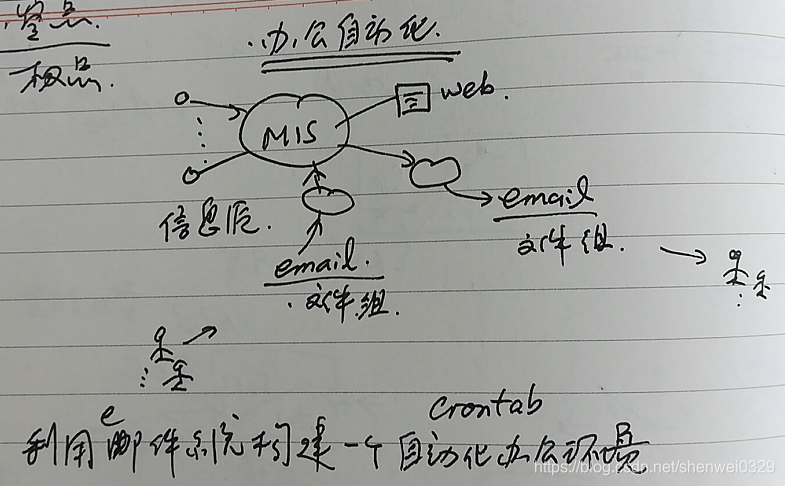 办公自动化.
极品.
web.
MIS
email
信息源.
文件组.
email.
文件组.
e
crontab
利用邮件系统构建一个自动化办公环境
https://blog.csdn.net/shenwei0329